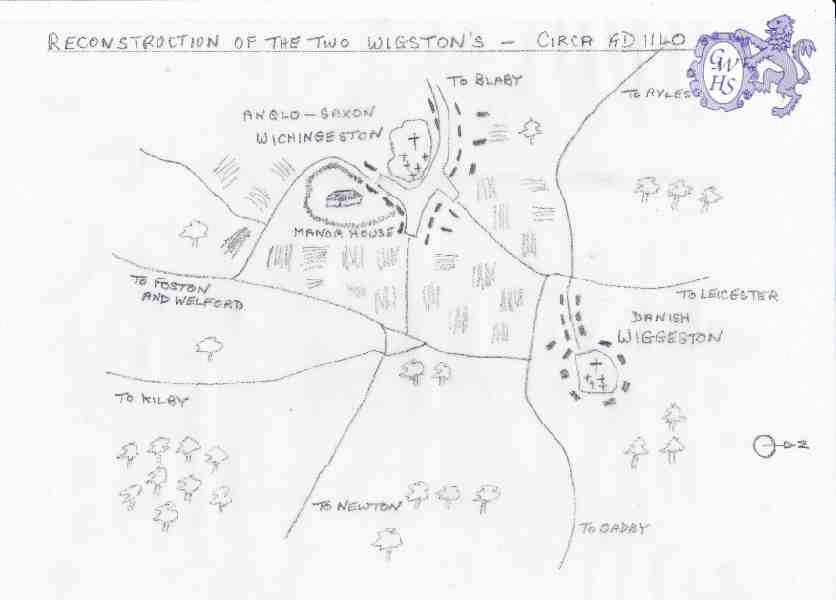 RECONSTRUCTION OF THE TWO WIGSTON'S – CIRCA AD 1140
GW
HS
TO BLABY
TO AYLES
ANGLO-SAXON
WICHINGESTON
MANOR HOUSE
TO FOSTON
AND WELFORD
TO LEICESTER
DANISH
WIGGESTON
TO KILBY
N
TO NEWTON
TO OADBY